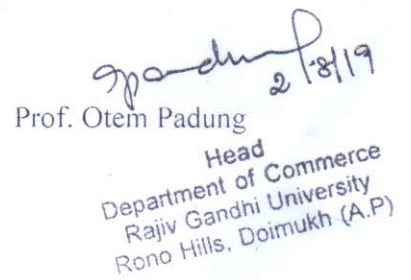 2/8/19
Prof. Otem Padung
Head
Department of Commerce
Rajiv Gandhi University
Rono Hills, Doimukh (A.P)